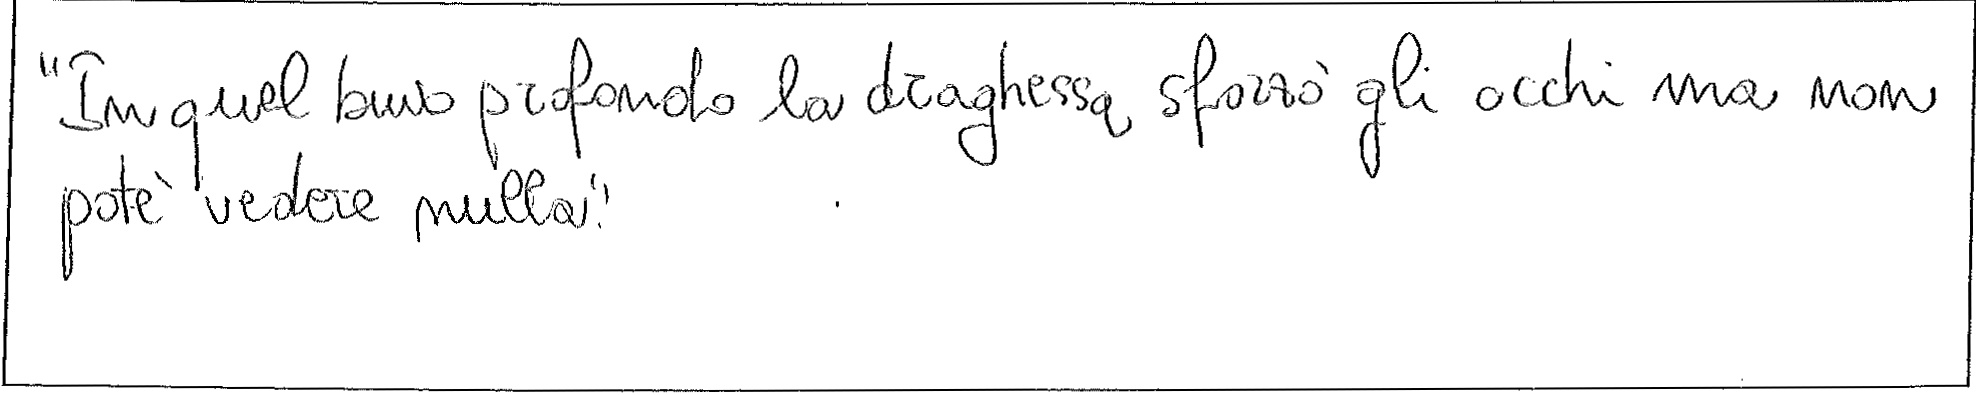 "In quel buio profondo la draghessa sforzò gli occhi ma non
potè vedere nulla."